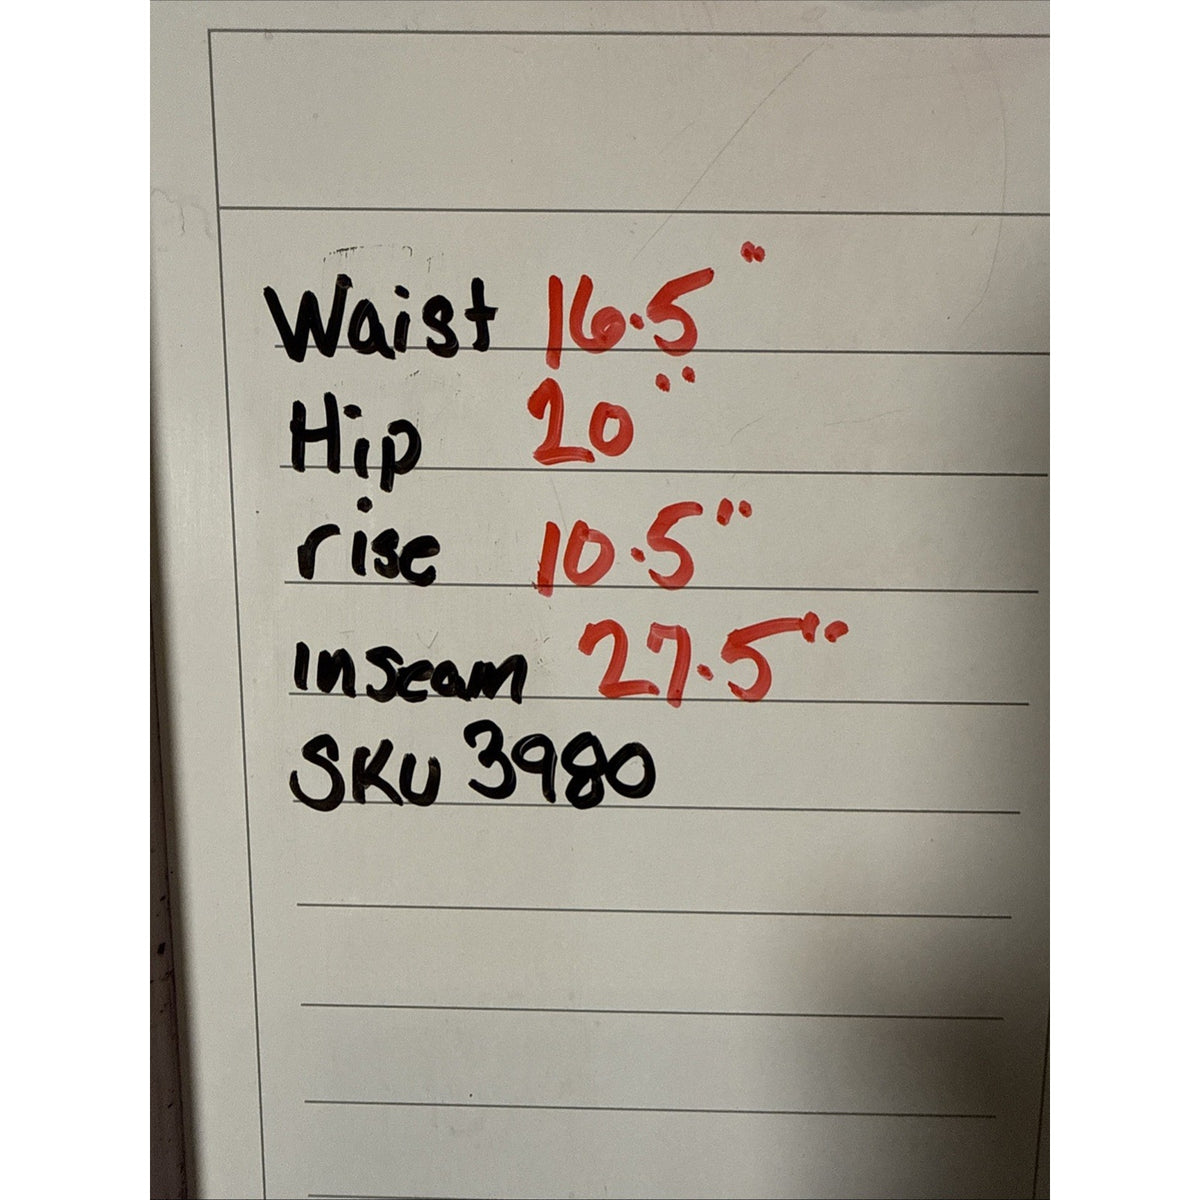 Waist 16.5"
Hip 20"
rise 10.5"
inseam 27.5"
SKU 3980